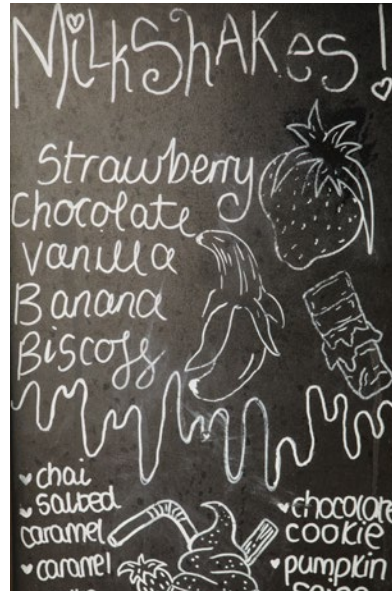 Milkshakes!
Strawberry
Chocolate
Vanilla
Banana
Biscoff
chai
salted
caramel
caramel
chocolate
cookie
pumpkin